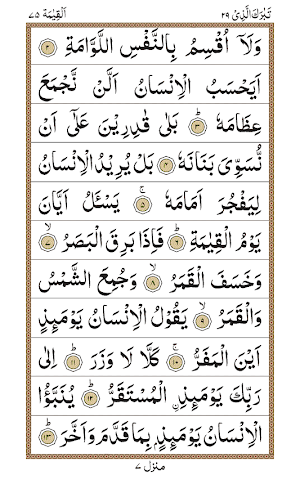 تَبٰرَكَ الَّذِیْ ٢٩ اَلْقِیٰمَة ٧٥
وَلَاۤ اُقْسِمُ بِالنَّفْسِ اللَّوَّامَةِ ۝٢
اَیَحْسَبُ الْاِنْسَانُ اَلَّنْ نَّجْمَعَ
عِظَامَهٗ ؕ۝٣ بَلٰى قٰدِرِیْنَ عَلٰۤى اَنْ
نُّسَوِّیَ بَنَانَهٗ ۝٤ بَلْ یُرِیْدُ الْاِنْسَانُ
لِیَفْجُرَ اَمَامَهٗ ۚ۝٥ یَسْـَٔلُ اَیَّانَ
یَوْمُ الْقِیٰمَةِ ؕ۝٦ فَاِذَا بَرِقَ الْبَصَرُ ۙ۝٧
وَخَسَفَ الْقَمَرُ ۙ۝٨ وَجُمِعَ الشَّمْسُ
وَالْقَمَرُ ۙ۝٩ یَقُوْلُ الْاِنْسَانُ یَوْمَىِٕذٍ
اَیْنَ الْمَفَرُّ ۚ۝١٠ كَلَّا لَا وَزَرَ ؕ۝١١ اِلٰى
رَبِّكَ یَوْمَىِٕذِ ِ۟الْمُسْتَقَرُّ ؕ۝١٢ یُنَبَّؤُا
الْاِنْسَانُ یَوْمَىِٕذٍۭ بِمَا قَدَّمَ وَاَخَّرَ ؕ۝١٣
منزل ٧